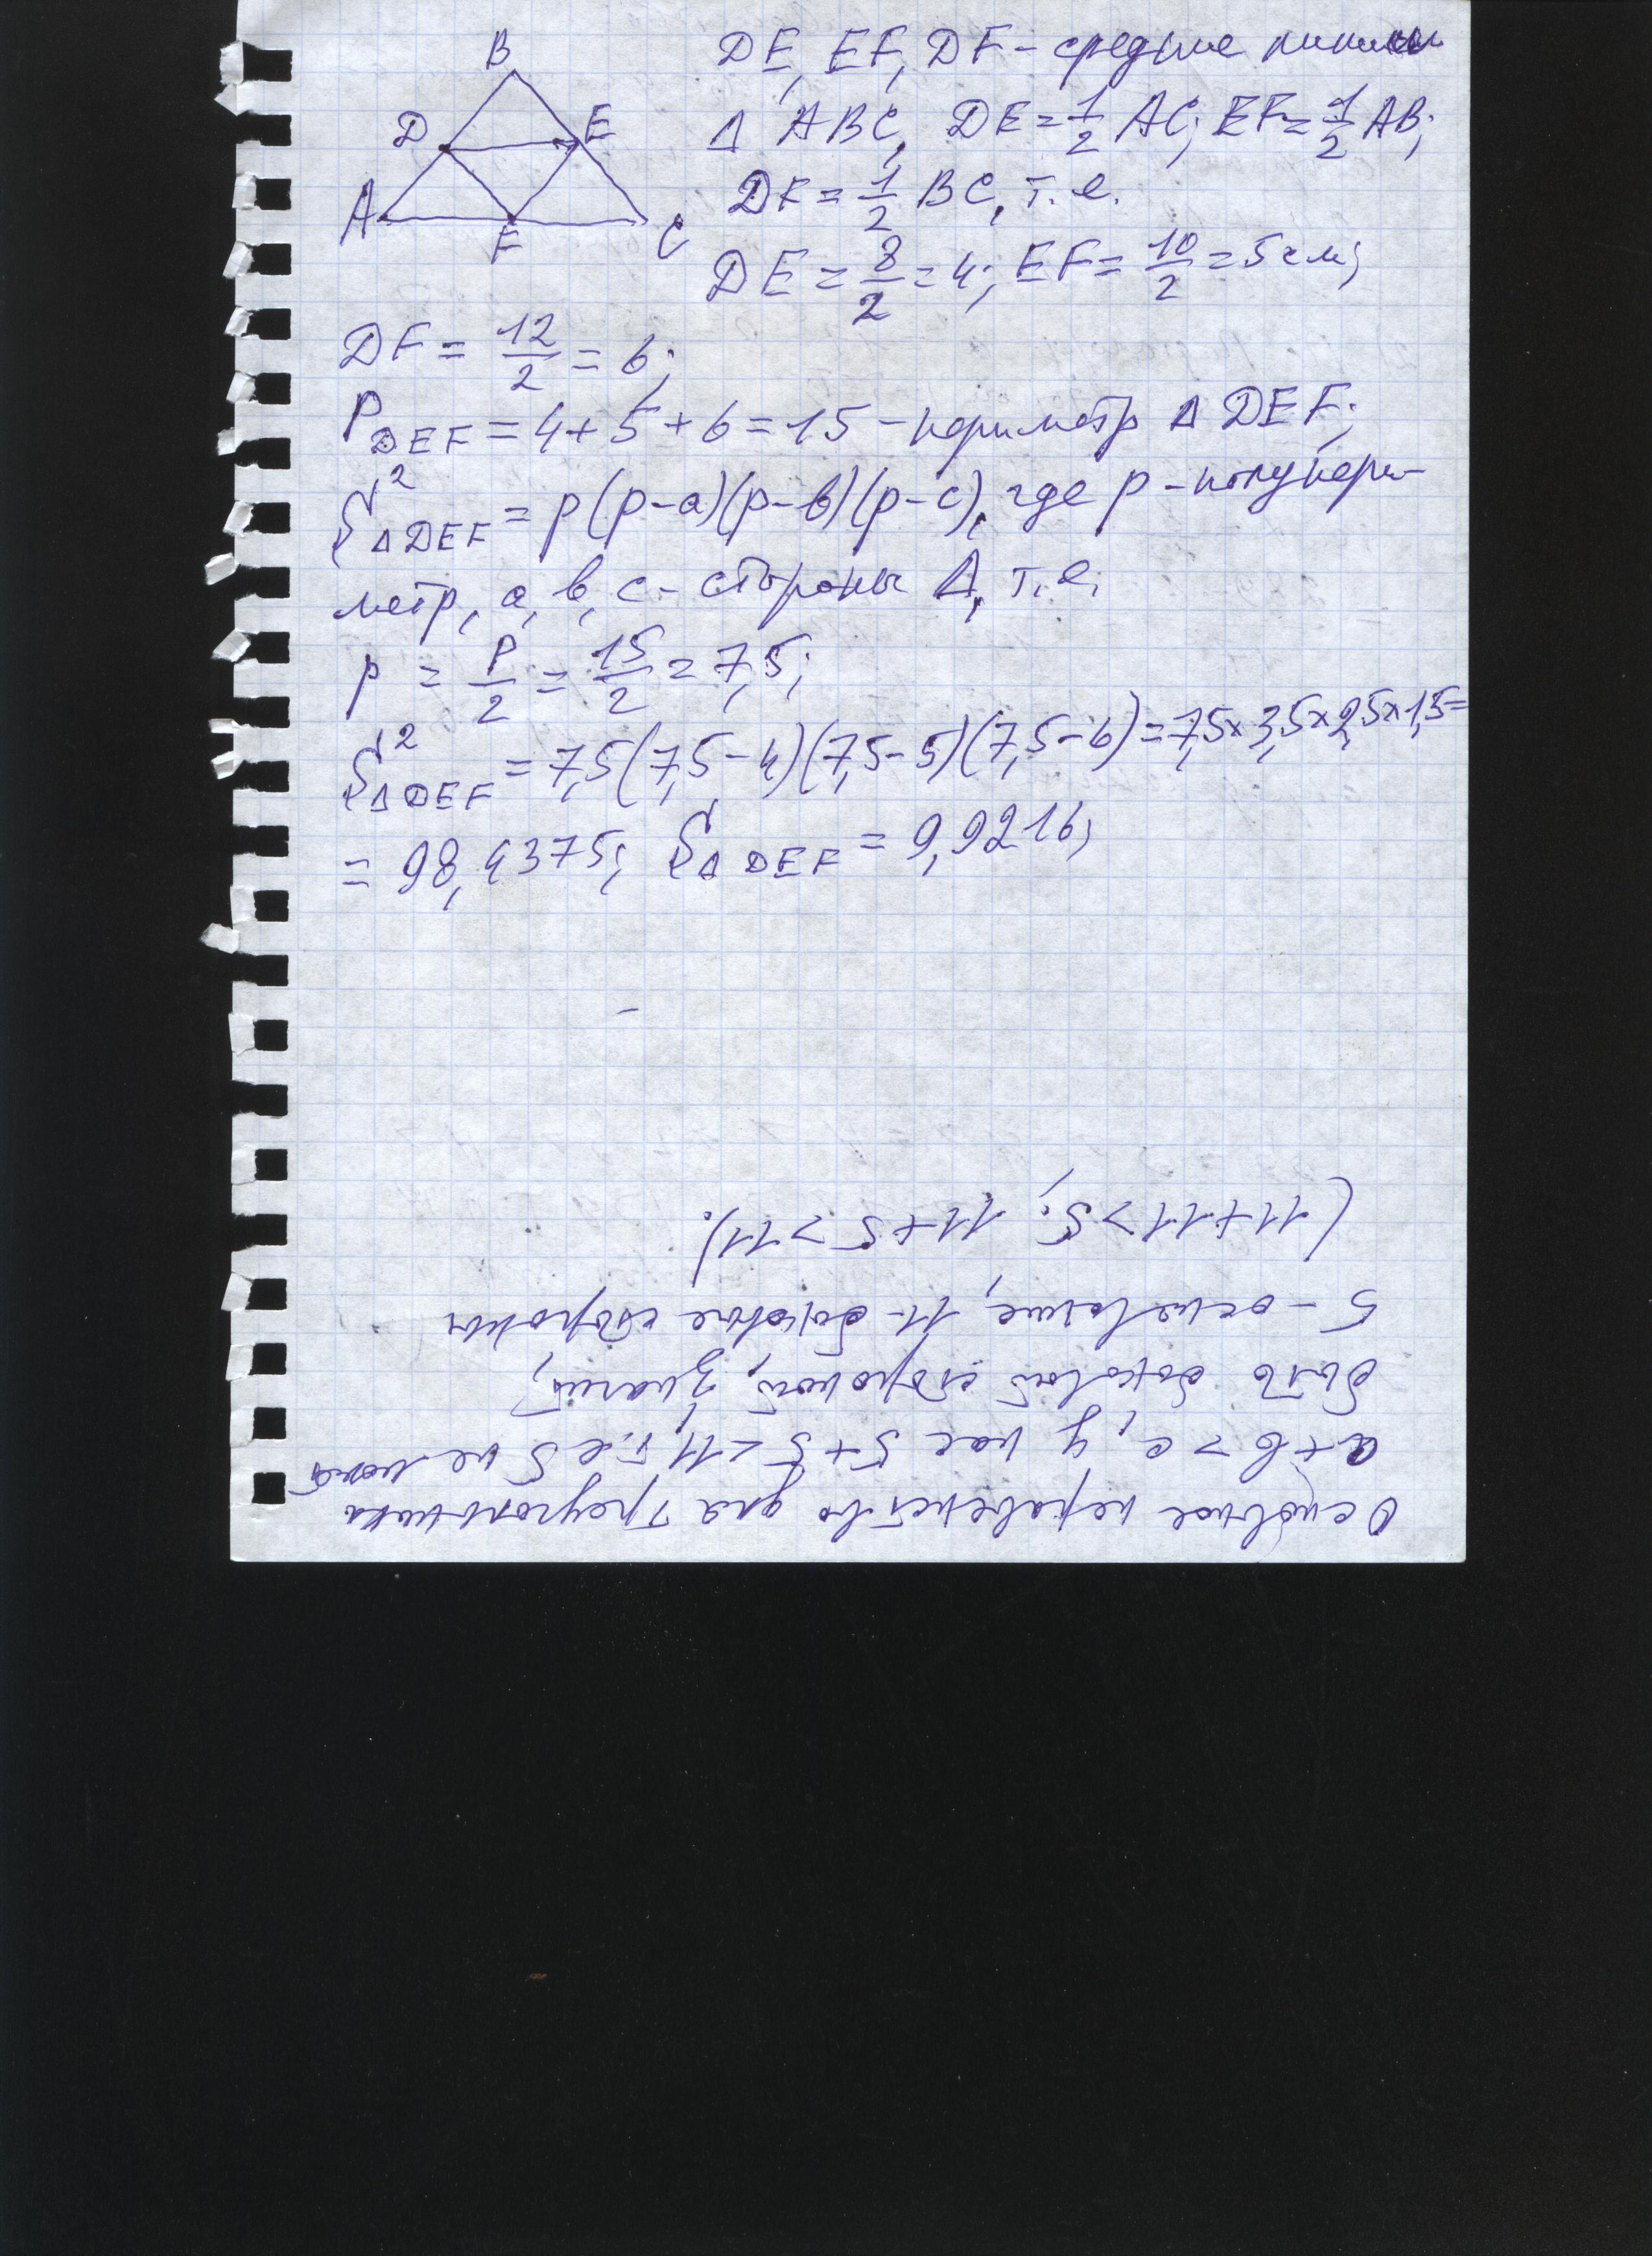 B
D
E
A
F
C
DE, EF, DF – средние линии
Δ ABC, DE = 1/2 AC; EF = 1/2 AB;
DF = 1/2 BC, т. е.
DE = 8/2 = 4; EF = 10/2 = 5 см;
DF = 12/2 = 6;
P DEF = 4 + 5 + 6 = 15 – периметр Δ DEF;
S² Δ DEF = p(p-a)(p-в)(p-c), где p – полупери-
метр, a, в, c – стороны Δ, т. е.
p = P/2 = 15/2 = 7,5;
S² Δ DEF = 7,5(7,5-4)(7,5-5)(7,5-6) = 7,5×3,5×2,5×1,5 =
= 98,4375; S Δ DEF = 9,9216;
Основное неравенство для треугольника
a + в > c, у нас 5 + 5 < 11, т. е 5 не может
быть боковой стороной, значит,
5 – основание, 11 – боковые стороны
(11 + 11 > 5; 11 + 5 > 11).